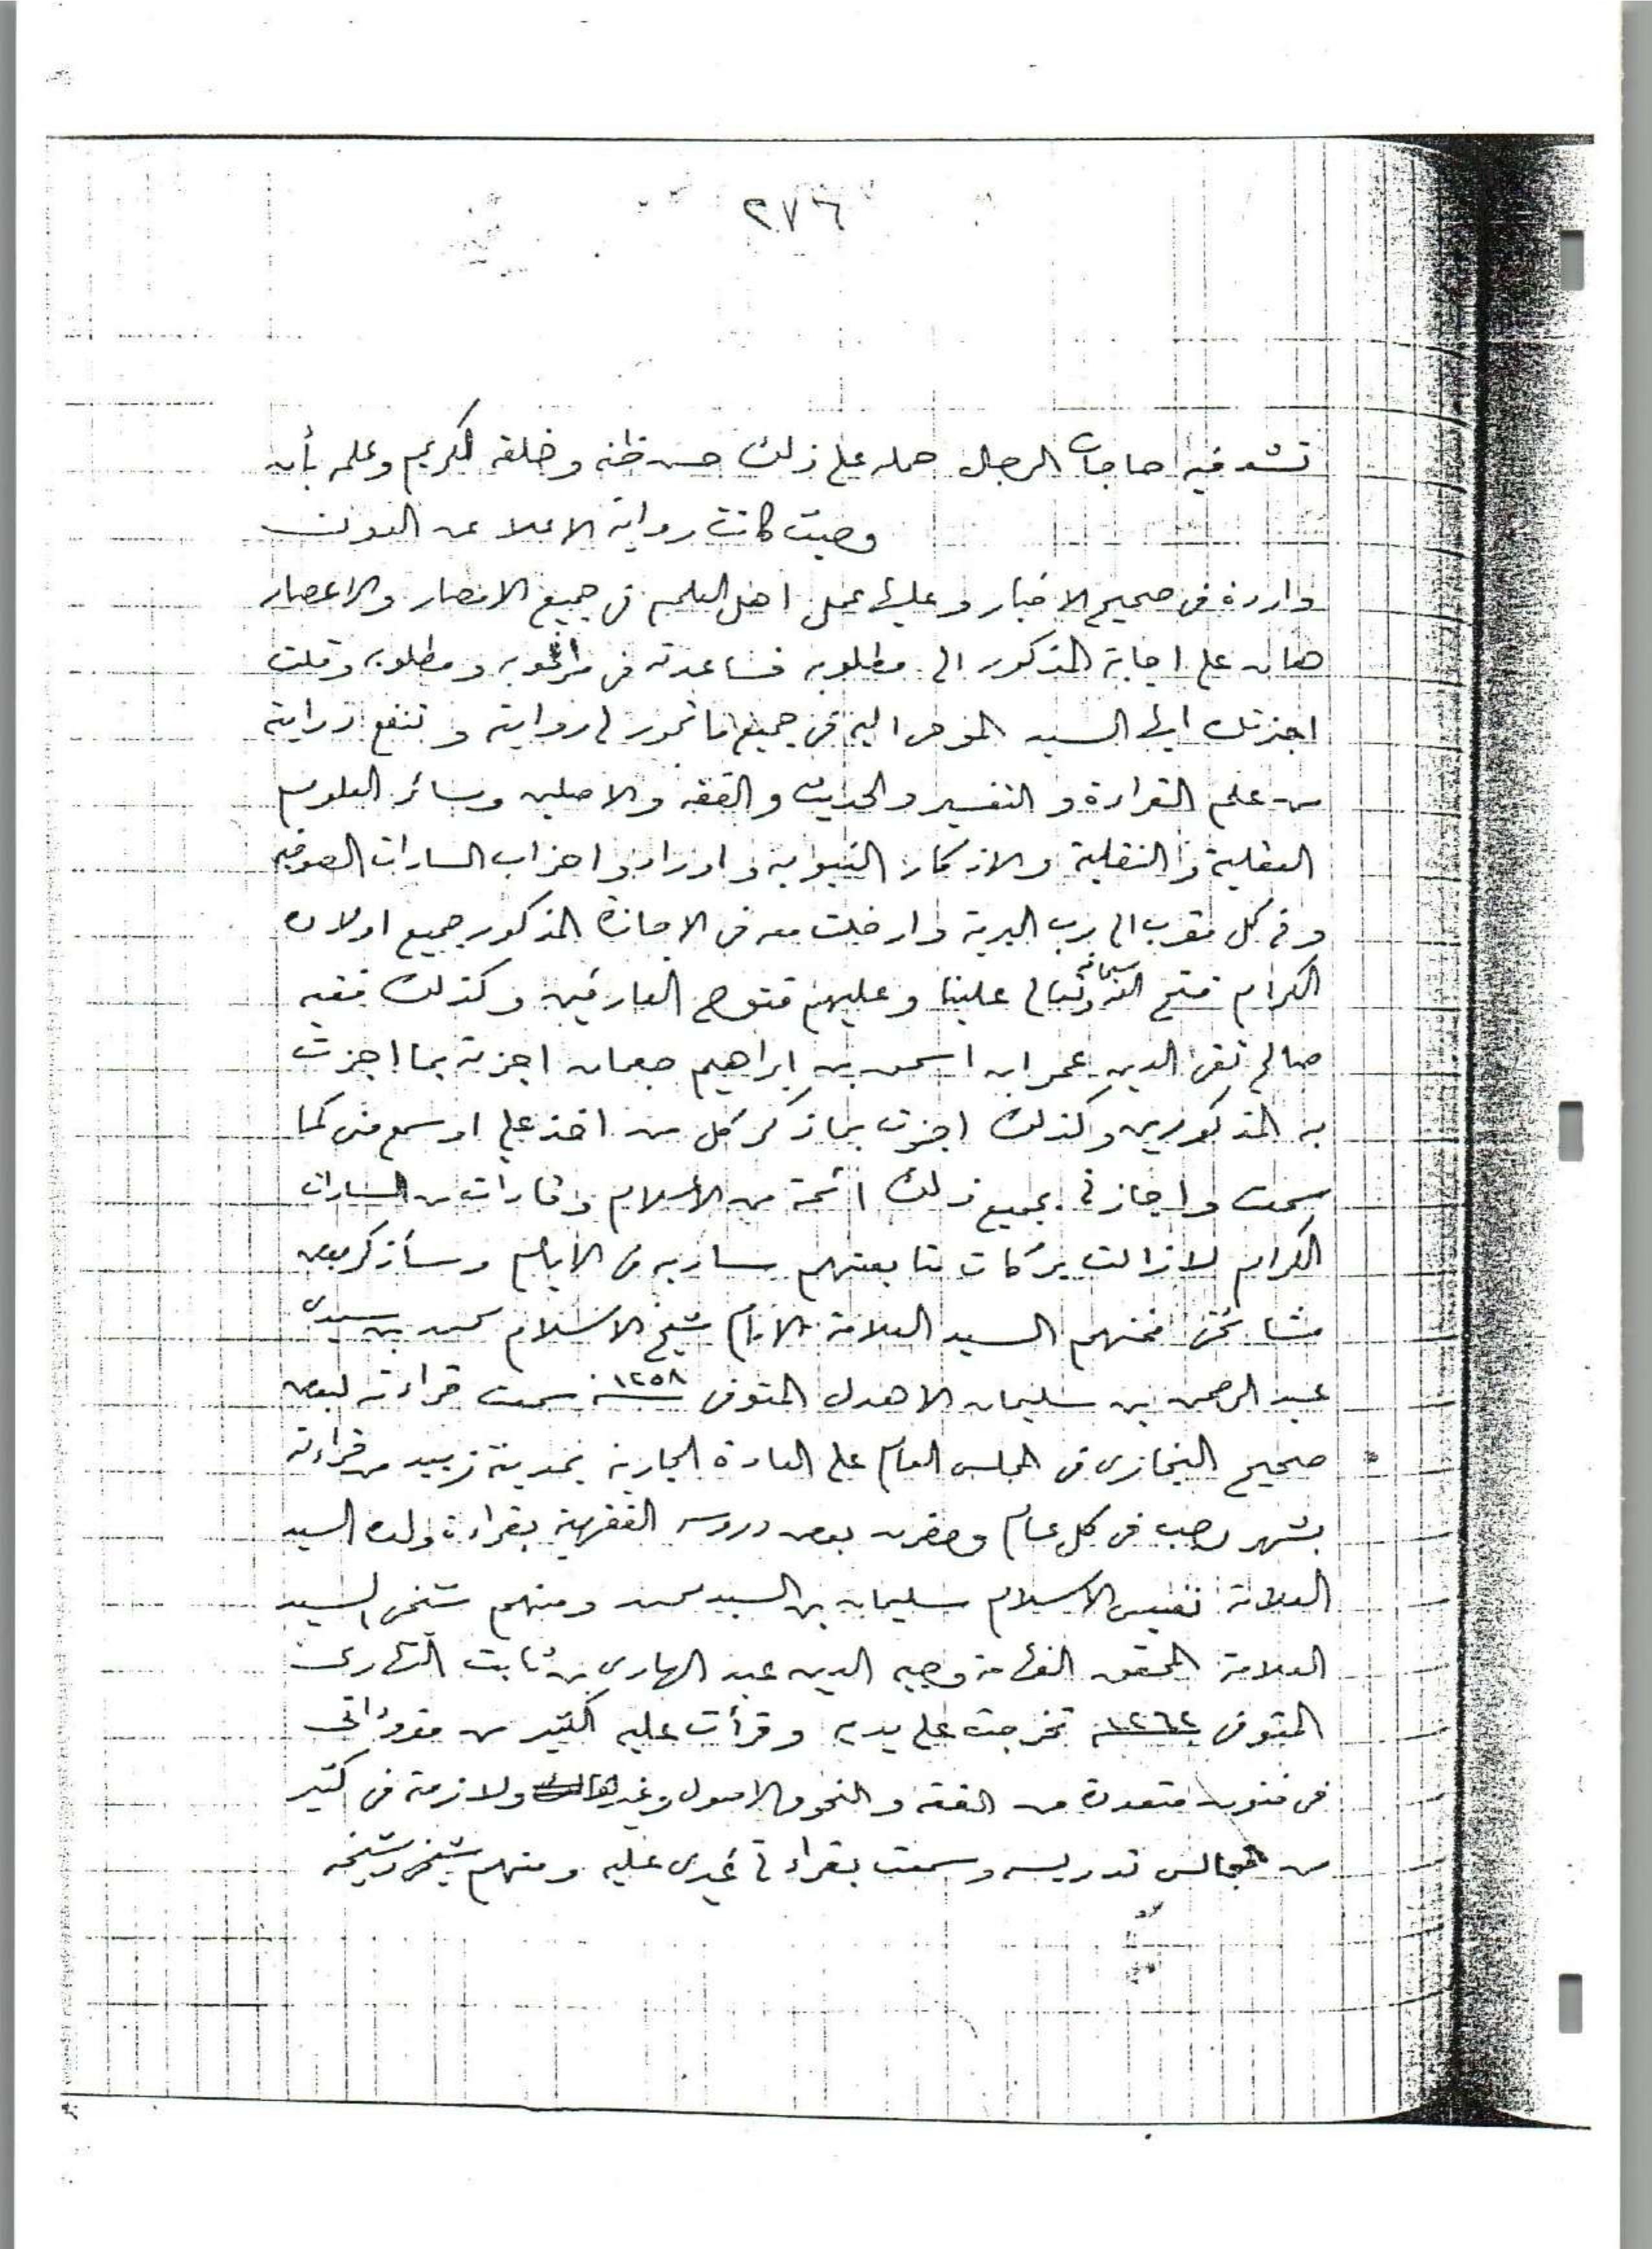 ٢٧٦
تشد فيه حاجات الرجال حمله على ذلك حسن ظنه وخلقه الكريم وعلمه بأن
وحيث كانت رواية الاعلا عن الدون
واردة في صحيح الاخبار وعليها عمل اهل العلم في جميع الامصار والاعصار
هان على اجابة المذكور الى مطلوبه فساعدته في مرغوبه ومطلوبه وقلت
اجزتك ايها السيد المومى اليه في جميع ما تجوز لي روايته وتنفع درايته
من علم القراءة والتفسير والحديث والفقه والاصلين وسائر العلوم
العقلية والنقلية والاذكار النبويه واوراد واحزاب السادات الصوفيه
وفي كل مقرب الى رب البرية وادخلت معه في الاجازة المذكور جميع اولاده
الكرام فتح الله سبحانه وتعالى علينا وعليهم فتوح العارفين وكذلك فقيه
صالح تقي الدين عمر ابن اسحق بن ابراهيم جعمان اجزته بما اجزت
به المذكورين وكذلك اجزت بما ذكر كل من اخذ علي او سمع مني كما
سمعت واجازني بجميع ذلك ائمة من الأسلام وقادات من السادات
الكرام لازالت بركات متابعتهم ساريه في الأيام وسأذكر بعض
مشائخي فمنهم السيد العلامة شيخ الاسلام محمد بن سيدي
عبد الرحمن بن سليمان الاهدل المتوفى سنة ١٢٥٨ سمعت قراءته لبعض
صحيح البخاري في المجلس العام على العادة الجارية بمدينة زبيد من قراءته
بشهر رجب في كل عام وحضرت بعض دروسه الفقهية بقراءة ولده السيد
العلامة نفيس الاسلام سليمان بن السيد محمد ومنهم شيخي السيد
العلامة المحقق الفهامة وجيه الدين عبد الهادي بن ثابت النهاري
المتوفى سنة ١٢٦٢ تخرجت على يديه وقرأت عليه الكثير من مقروءاتي
في فنون متعددة من الفقه والنحو والاصول وغيرها ولازمته في كثير
من مجالس تدريسه وسمعت بقراءة غيري عليه ومنهم شيخي وشيخه